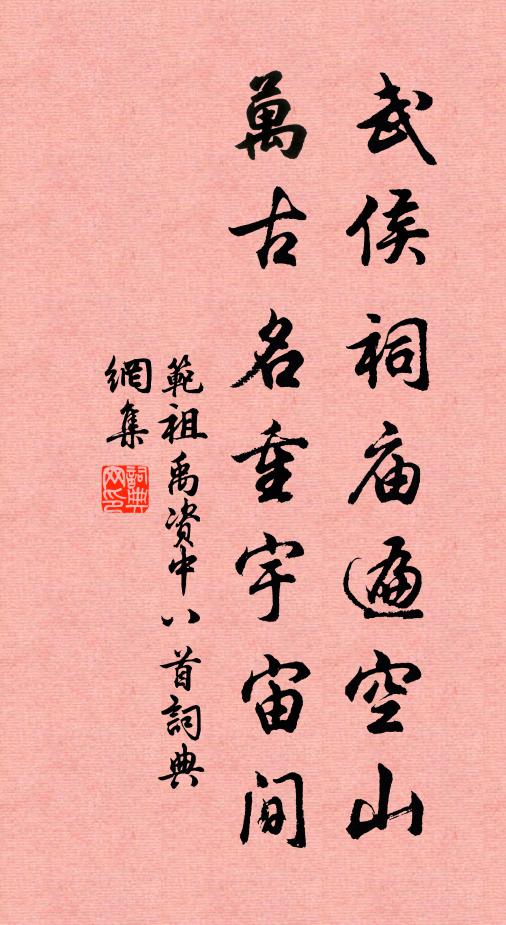 武侯祠庙遍空山
萬古名重宇宙间
範祖禹资中八首詞典
網集
詞典
网印